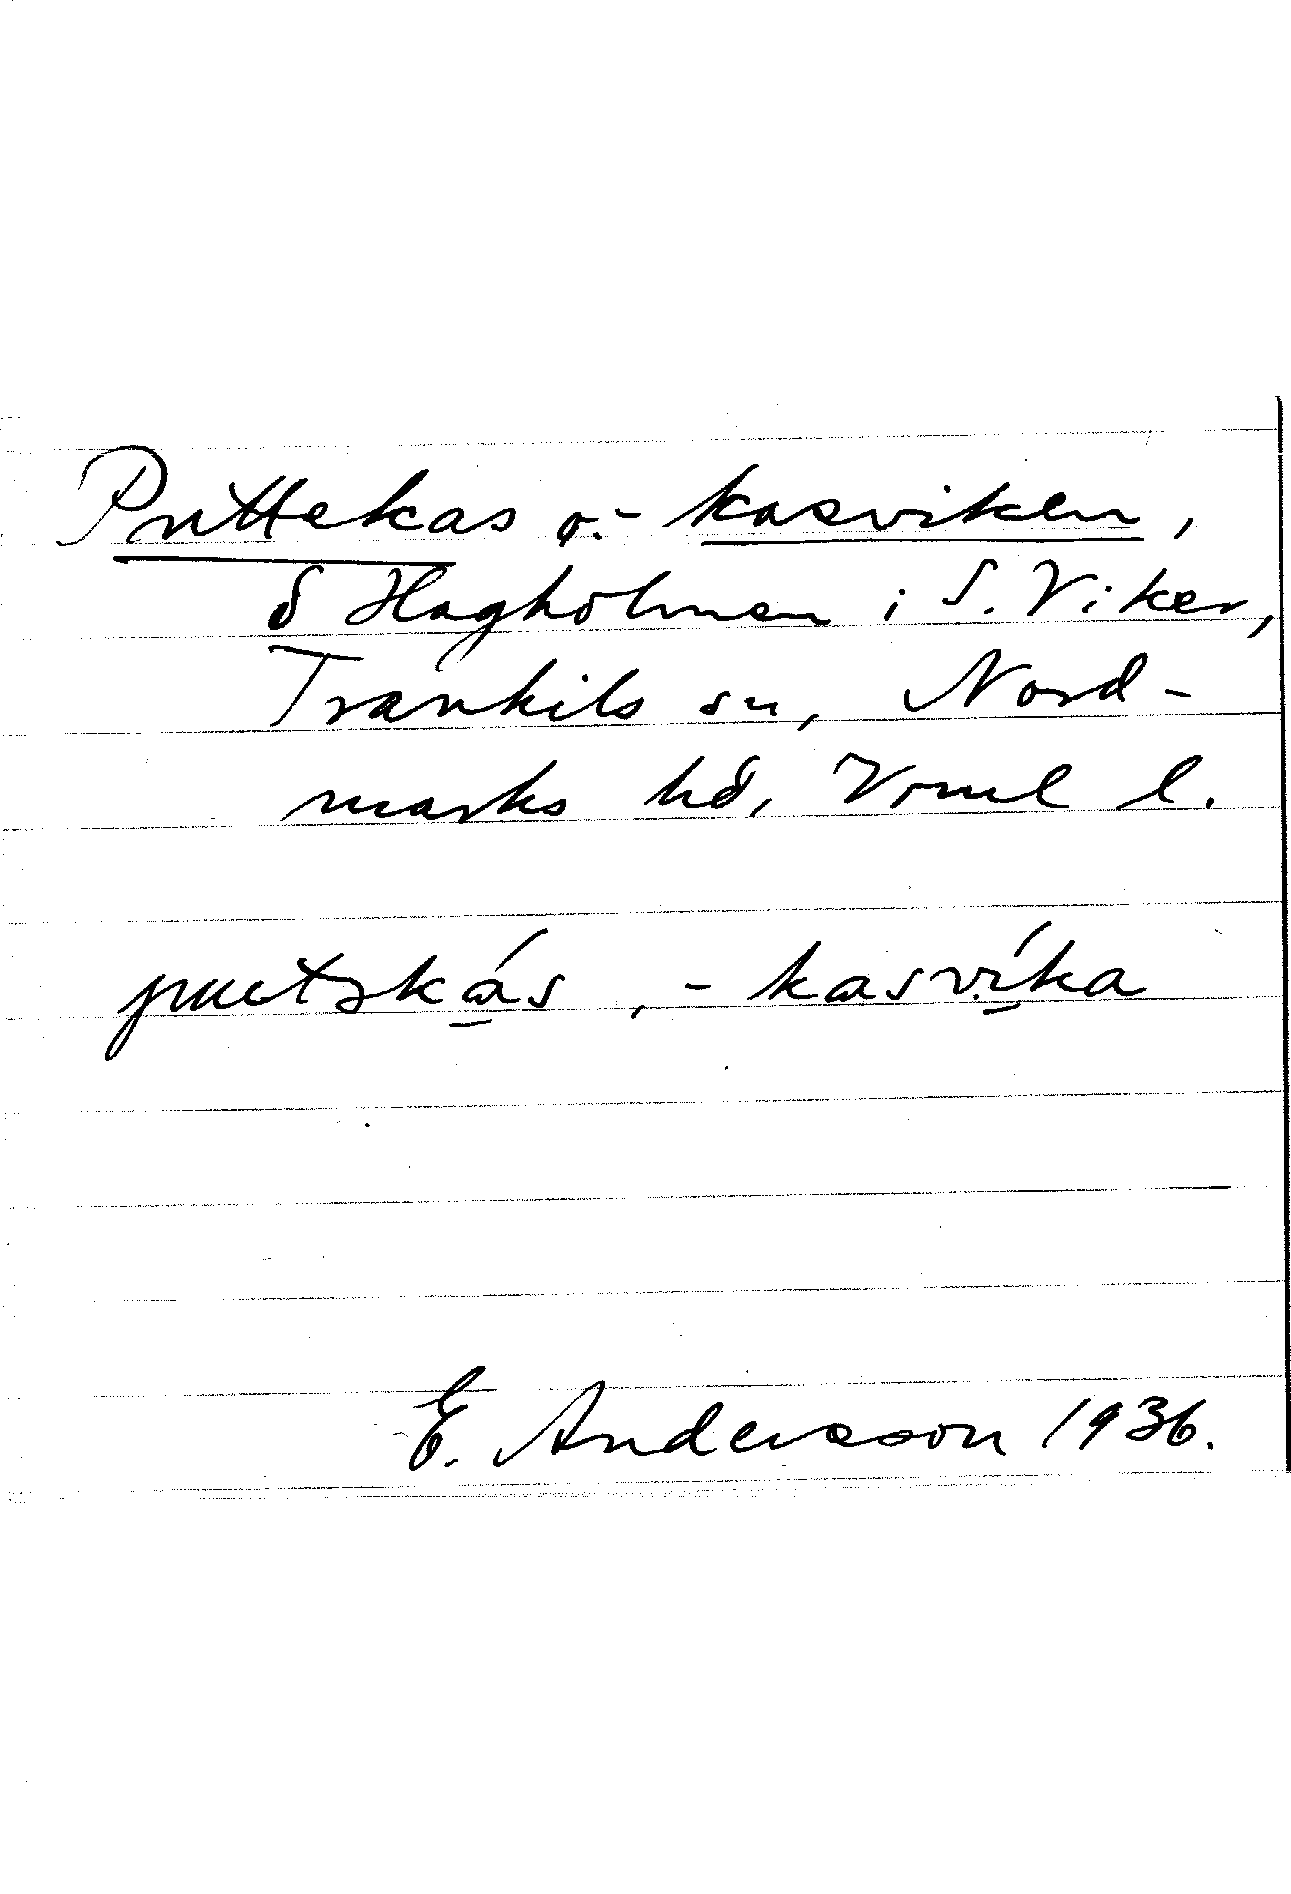 Puttekas o. -kasviken,
å Hagholmen i S. Viker,
Trankils sn, Nord-
marks hd, Vrml l.
puutəkás, -kasvíka
E. Andersson 1936.